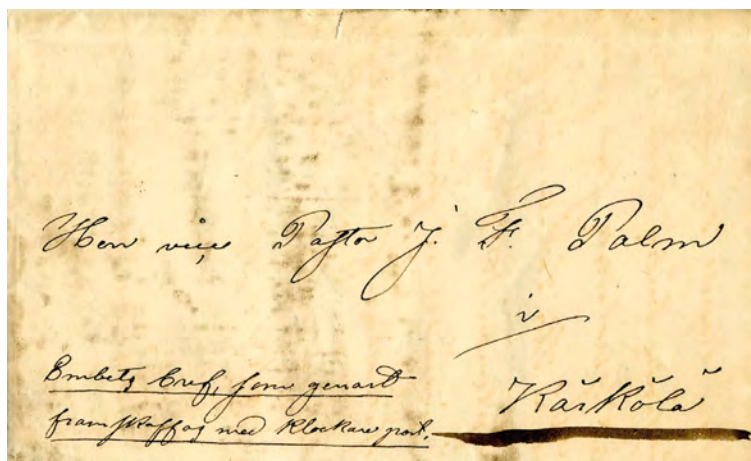 Herr vice Pastor J. F. Palm
i
Kärkölä
Embets bref, som genast
framskaffas med Klockare post.